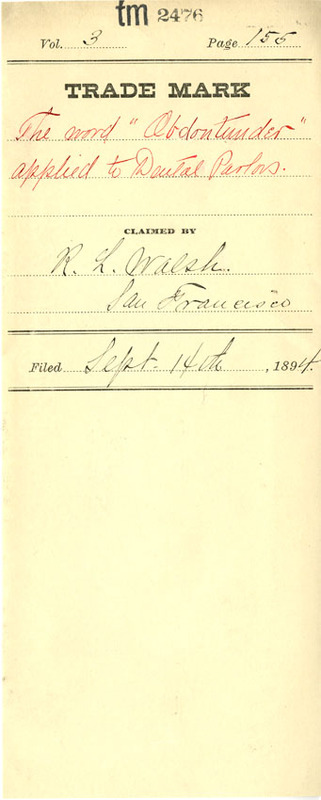 tm 2476
Vol. 3 Page 155
TRADE MARK
The word "Obdontunder"
applied to Dental Parlors.
CLAIMED BY
R. L. Walsh.
San Francisco
Filed Sept. 14th, 1894.